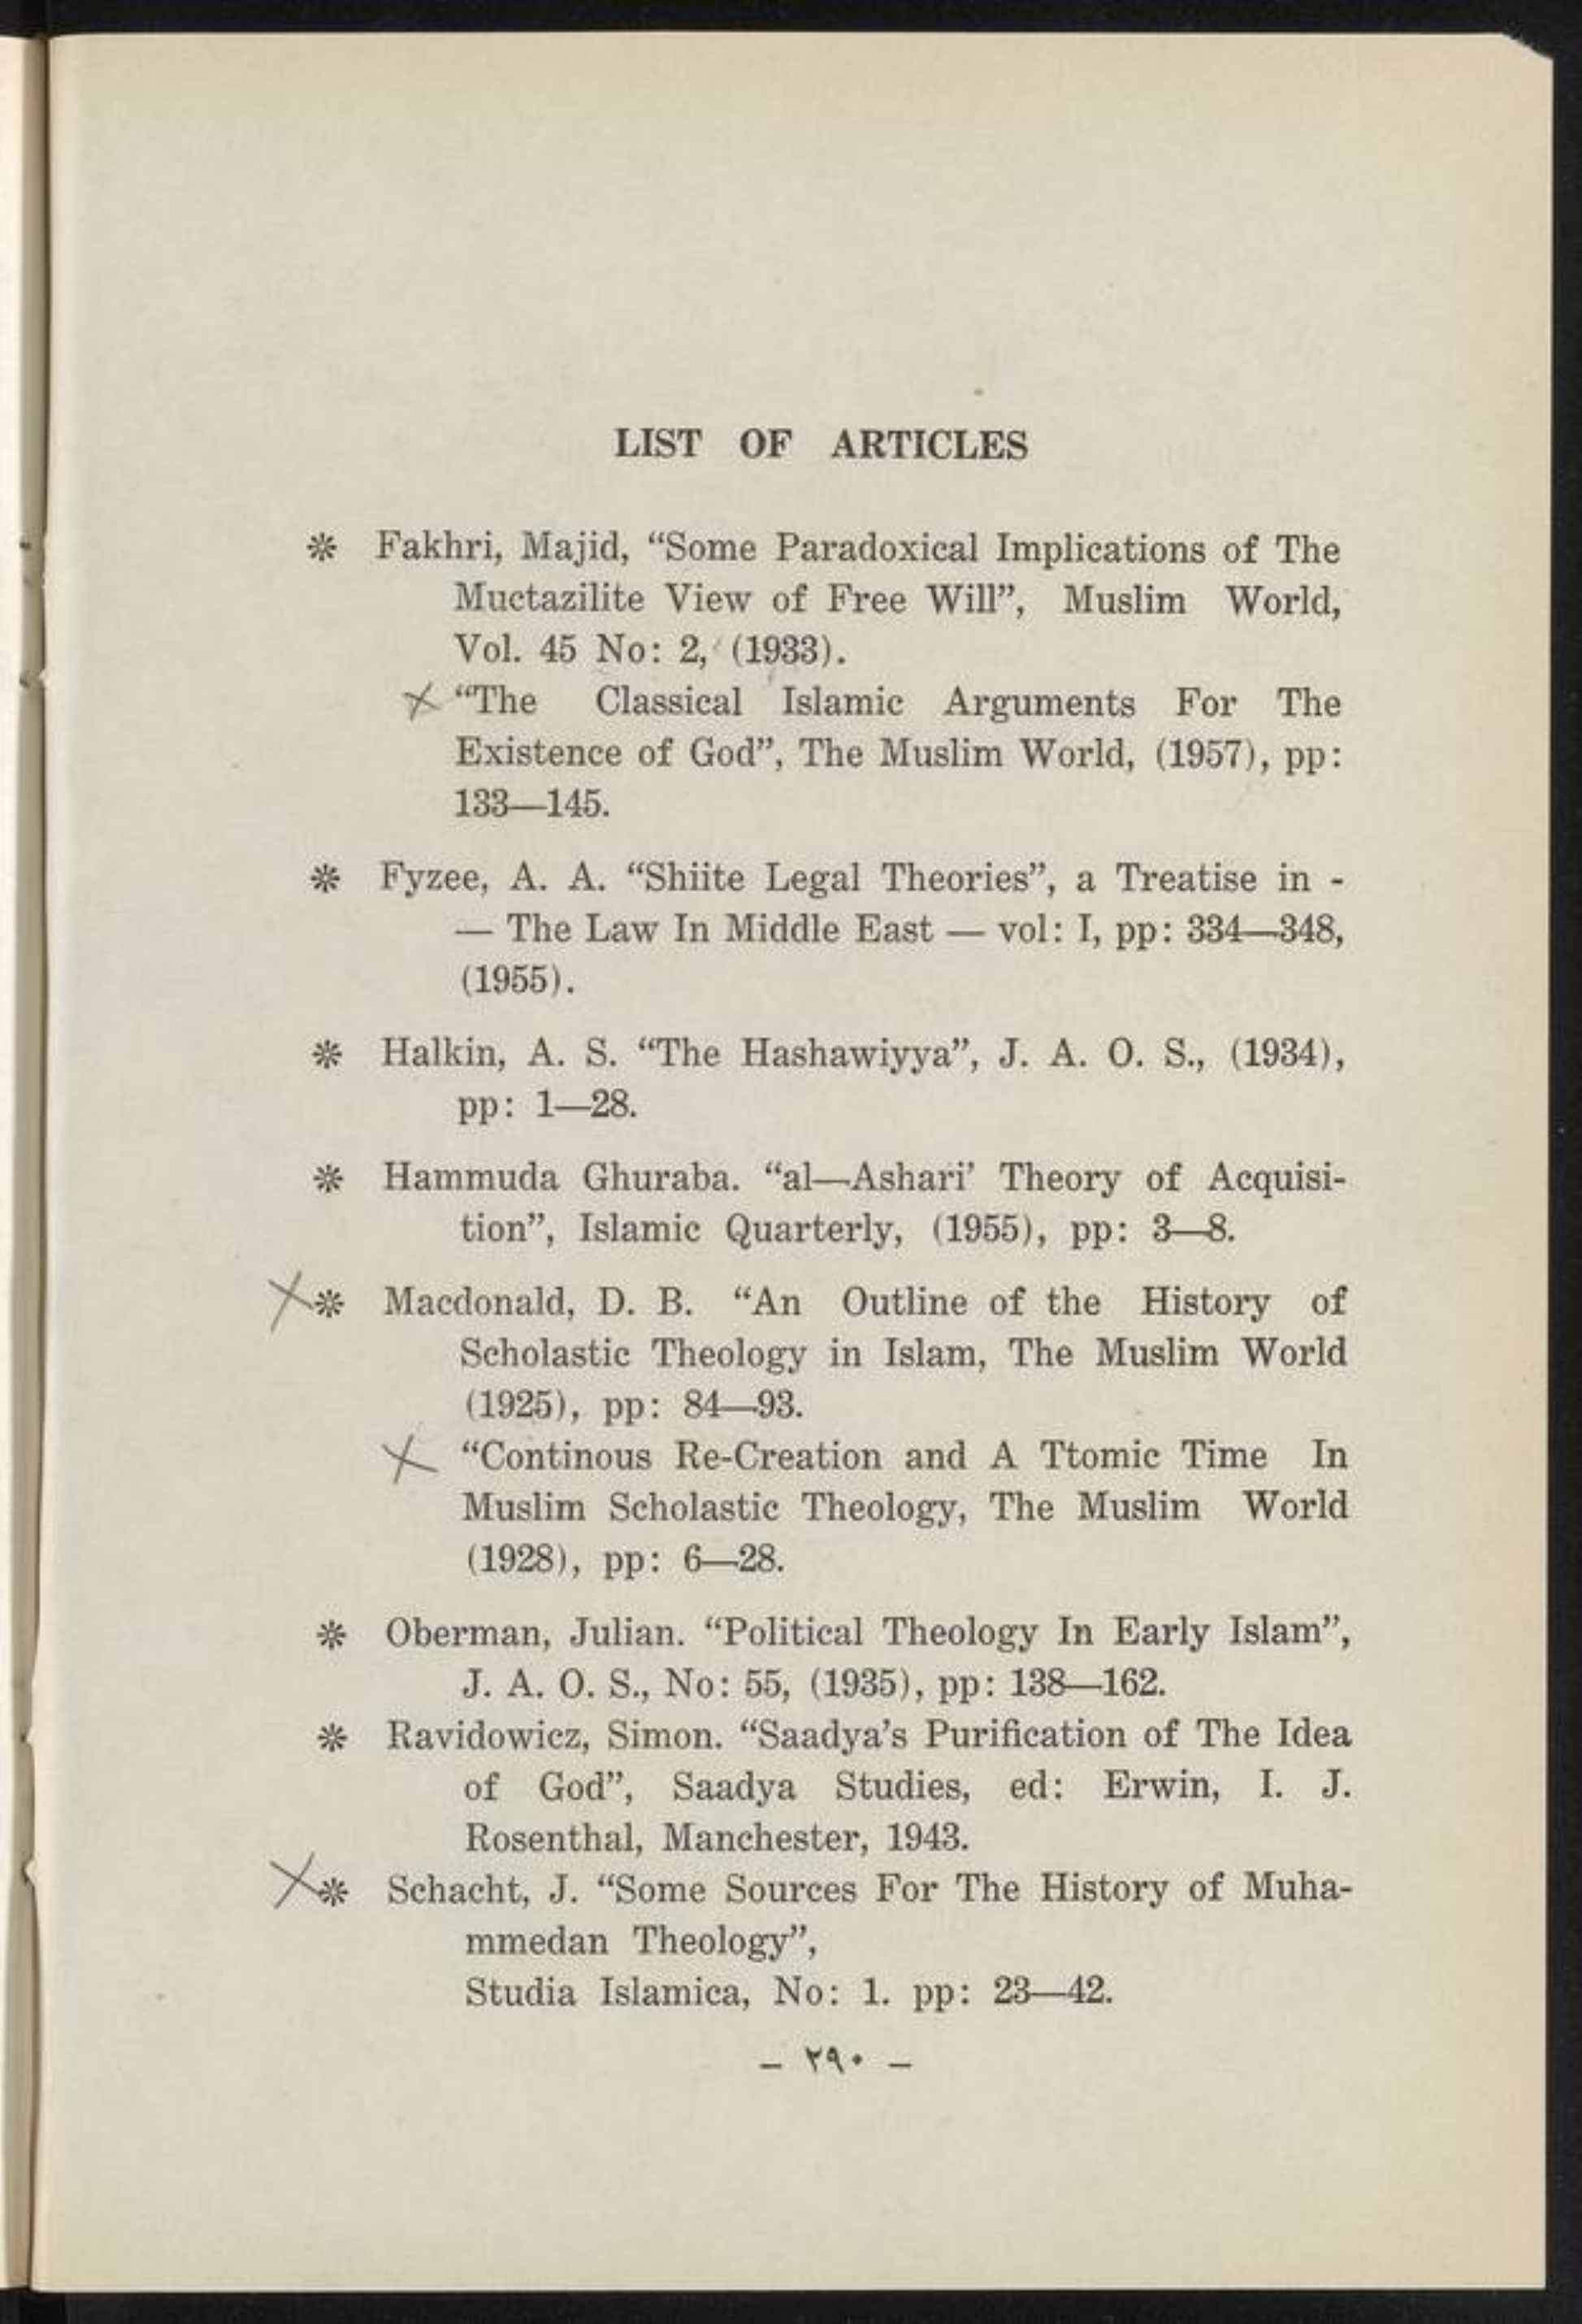 LIST OF ARTICLES
* Fakhri, Majid, “Some Paradoxical Implications of The
Muctazilite View of Free Will”, Muslim World,
Vol. 45 No: 2, (1933).
“The Classical Islamic Arguments For The
Existence of God”, The Muslim World, (1957), pp:
133—145.
* Fyzee, A. A. “Shiite Legal Theories”, a Treatise in -
— The Law In Middle East — vol: I, pp: 334—348,
(1955).
* Halkin, A. S. “The Hashawiyya”, J. A. O. S., (1934),
pp: 1—28.
* Hammuda Ghuraba. “al—Ashari’ Theory of Acquisi-
tion”, Islamic Quarterly, (1955), pp: 3—8.
* Macdonald, D. B. “An Outline of the History of
Scholastic Theology in Islam, The Muslim World
(1925), pp: 84—93.
“Continous Re-Creation and A Ttomic Time In
Muslim Scholastic Theology, The Muslim World
(1928), pp: 6—28.
* Oberman, Julian. “Political Theology In Early Islam”,
J. A. O. S., No: 55, (1935), pp: 138—162.
* Ravidowicz, Simon. “Saadya’s Purification of The Idea
of God”, Saadya Studies, ed: Erwin, I. J.
Rosenthal, Manchester, 1943.
* Schacht, J. “Some Sources For The History of Muha-
mmedan Theology”,
Studia Islamica, No: 1. pp: 23—42.
– ٢٩٠ –